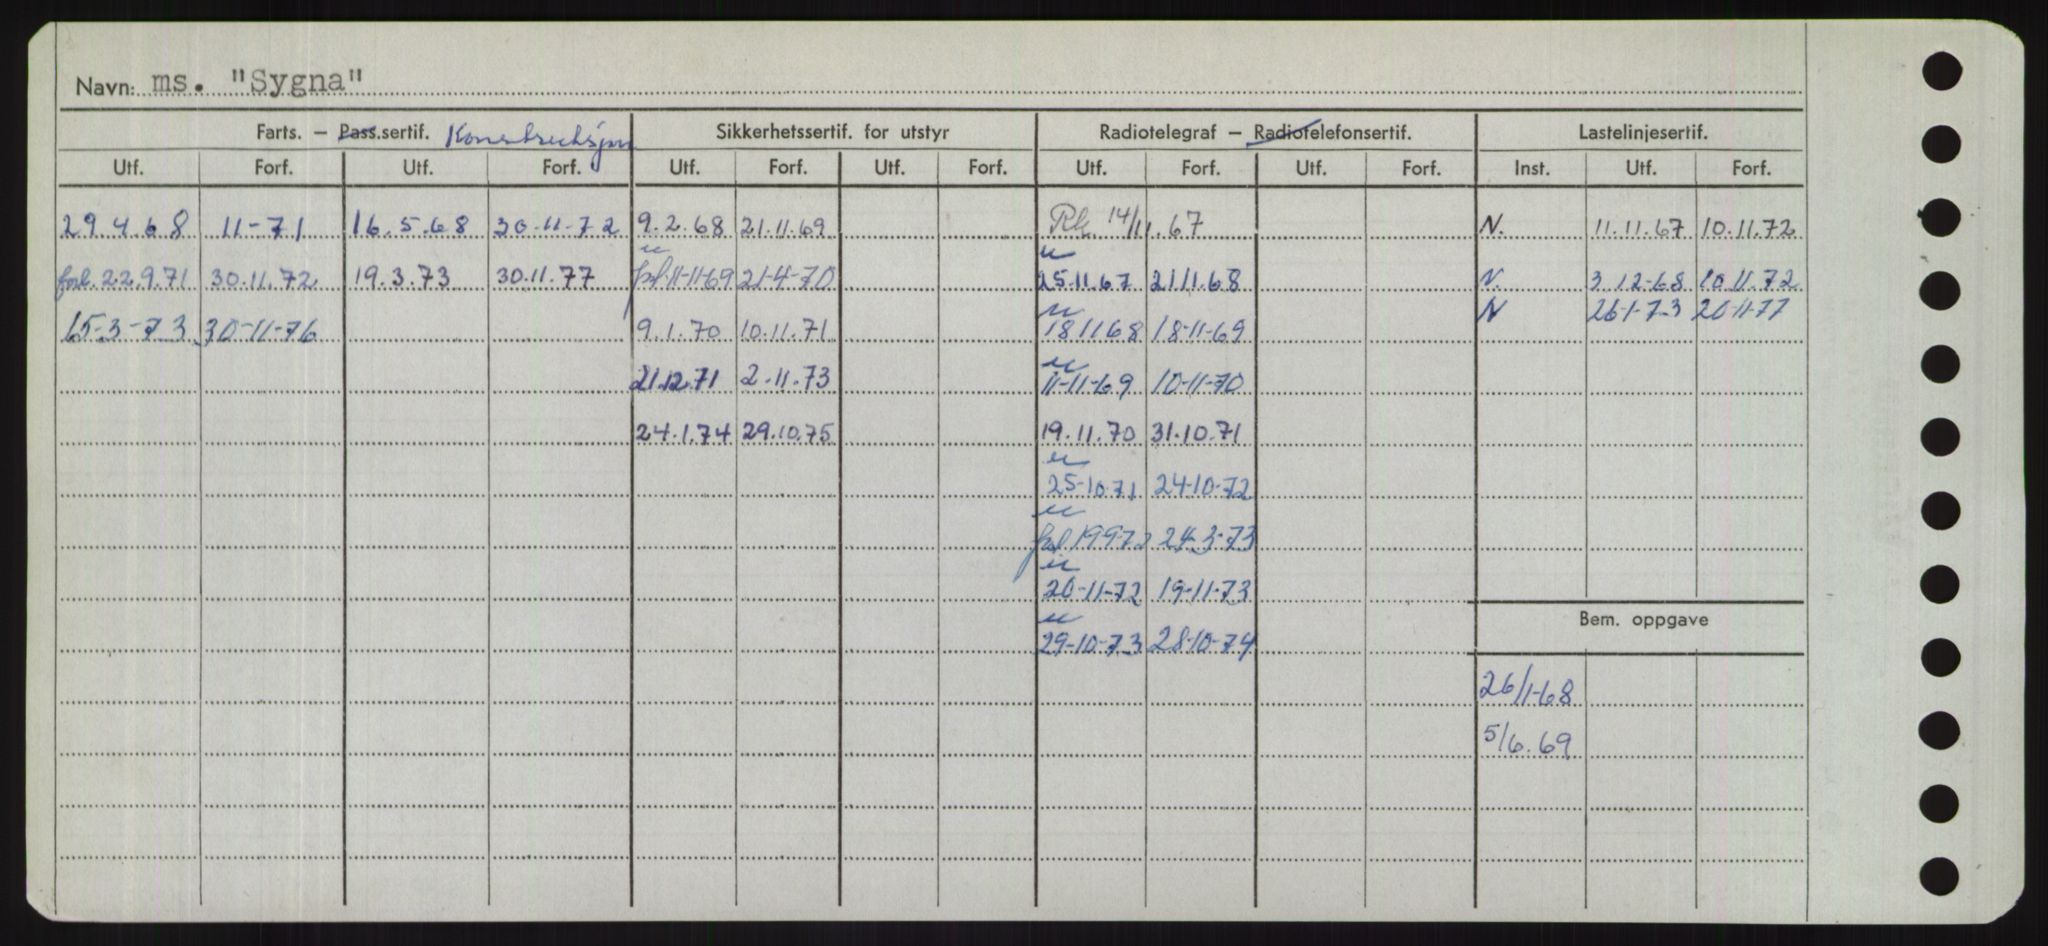 Navn: ms. "Sygna"
Farts. – Pass.sertif. Konstruksjon Sikkerhetssertif. for utstyr Radiotelegraf – Radiotelefonsertif. Lastelinjesertif.
Utf. Forf. Utf. Forf. Utf. Forf. Utf. Forf. Utf. Forf. Utf. Forf. Inst. Utf. Forf.
29.4.68 11-71 16.5.68 30-11-72 9.2.68 21.11.69 14/11.67 N. 11.11.67 10.11.72
u u
forl. 22.9.71 30.11.72 19.3.73 30.11.77 forl 11-11-69 21-4-70 25.11.67 21.11.68 N. 3 12-68 10.11.72
u N 26-1-73 20-11-77
15-3-73 30-11-76 9.1.70 10.11.71 18 11 68 18-11-69
u
21.12.71 2.11.73 11-11-69 10-11-70
24.1.74 29.10.75 19.11.70 31.10.71
u
25-10.71 24-10-72
u
forl 19972 24-3-73
u
20-11-72 19-11-73
Bem. oppgave
u
29-10-73 28-10-74
26/1-68
5/6.69